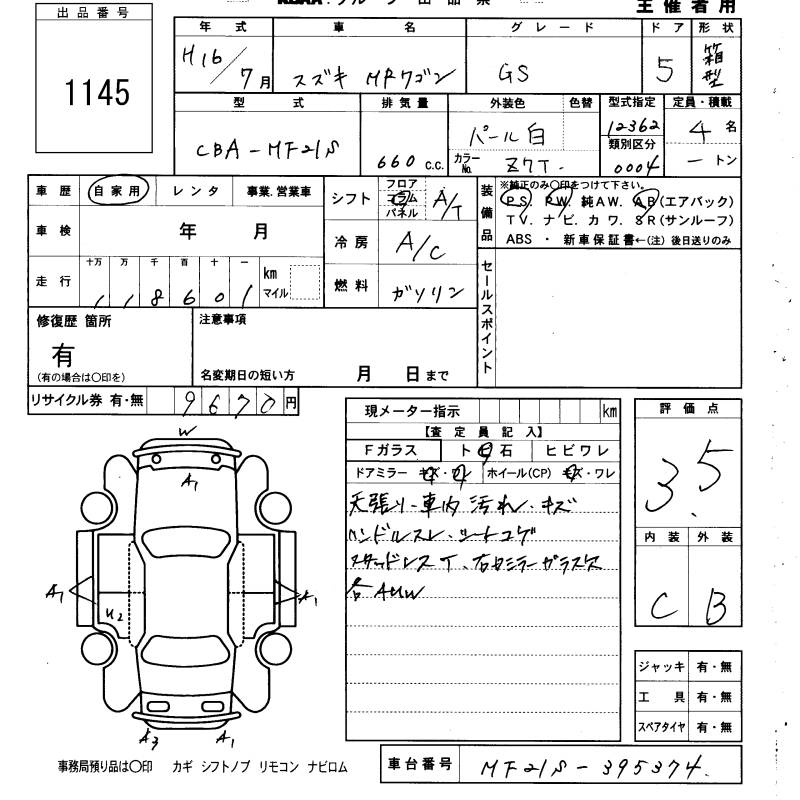 出品番号
1145
主催者用
年式 車名 グレード ドア 形状
H16/7月 スズキ MRワゴン GS 5 箱型
型式 排気量 外装色 色替 型式指定 定員・積載
CBA-MF21S 660 c.c. パール白 12362 4名
カラーNo. Z7T 類別区分 0004 ートン
車歴 自家用 レンタ 事業.営業車
車検 年 月
走行 十万 万 千 百 十 一
1 1 8 6 0 1 km マイル
シフト フロア コラム パネル A/T
冷房 A/C
燃料 ガソリン
装備品 ※純正のみ〇印をつけて下さい。
PS. PW. 純AW. AB(エアバック)
TV. ナビ. カワ. SR(サンルーフ)
ABS ・ 新車保証書←(注) 後日送りのみ
セールスポイント
修復歴 箇所
有
(有の場合は〇印を)
注意事項
名変期日の短い方 月 日まで
リサイクル券 有・無 9670円
現メーター指示 km
【査定員記入】
Fガラス ト石 ヒビワレ
ドアミラー キズ・ワレ ホイール(CP) キズ・ワレ
天張り・車内 汚れ・キズ
ハンドルスレ・シートコゲ
スタッドレスT、右ドミラーガラス欠
各AUW
評価点
3.5
内装 外装
C B
ジャッキ 有・無
工具 有・無
スペアタイヤ 有・無
W
A1
A1
U2
A1
A3 A1
事務局預り品は〇印 カギ シフトノブ リモコン ナビロム
車台番号 MF21S-395374